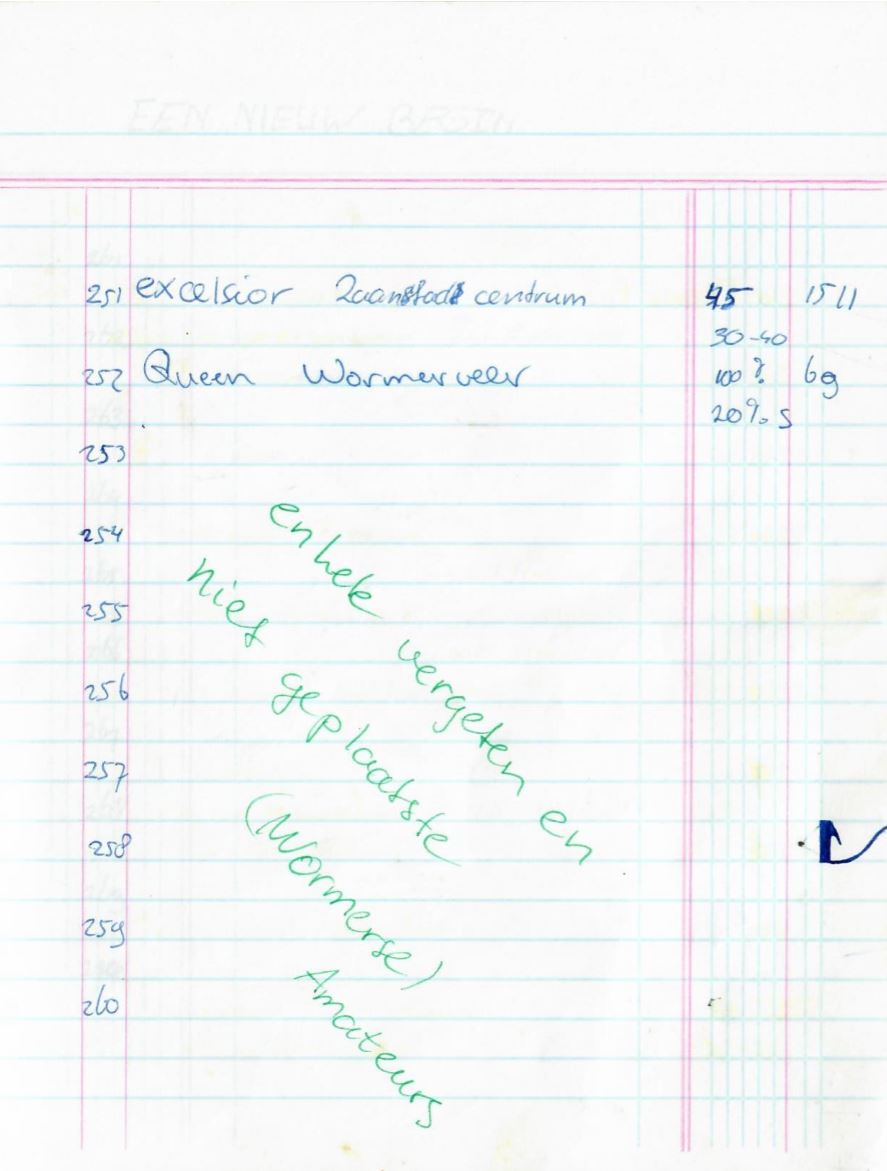 EEN NIEUW BEGIN
251 excelsior Zaanstads centrum 45 1511
30-40
252 Queen Wormerveer 100% 6g
20% S
253
254
255
256
257
258
259
260
enkele vergeten en
niet geplaatste
(Wormerse)
Amateurs